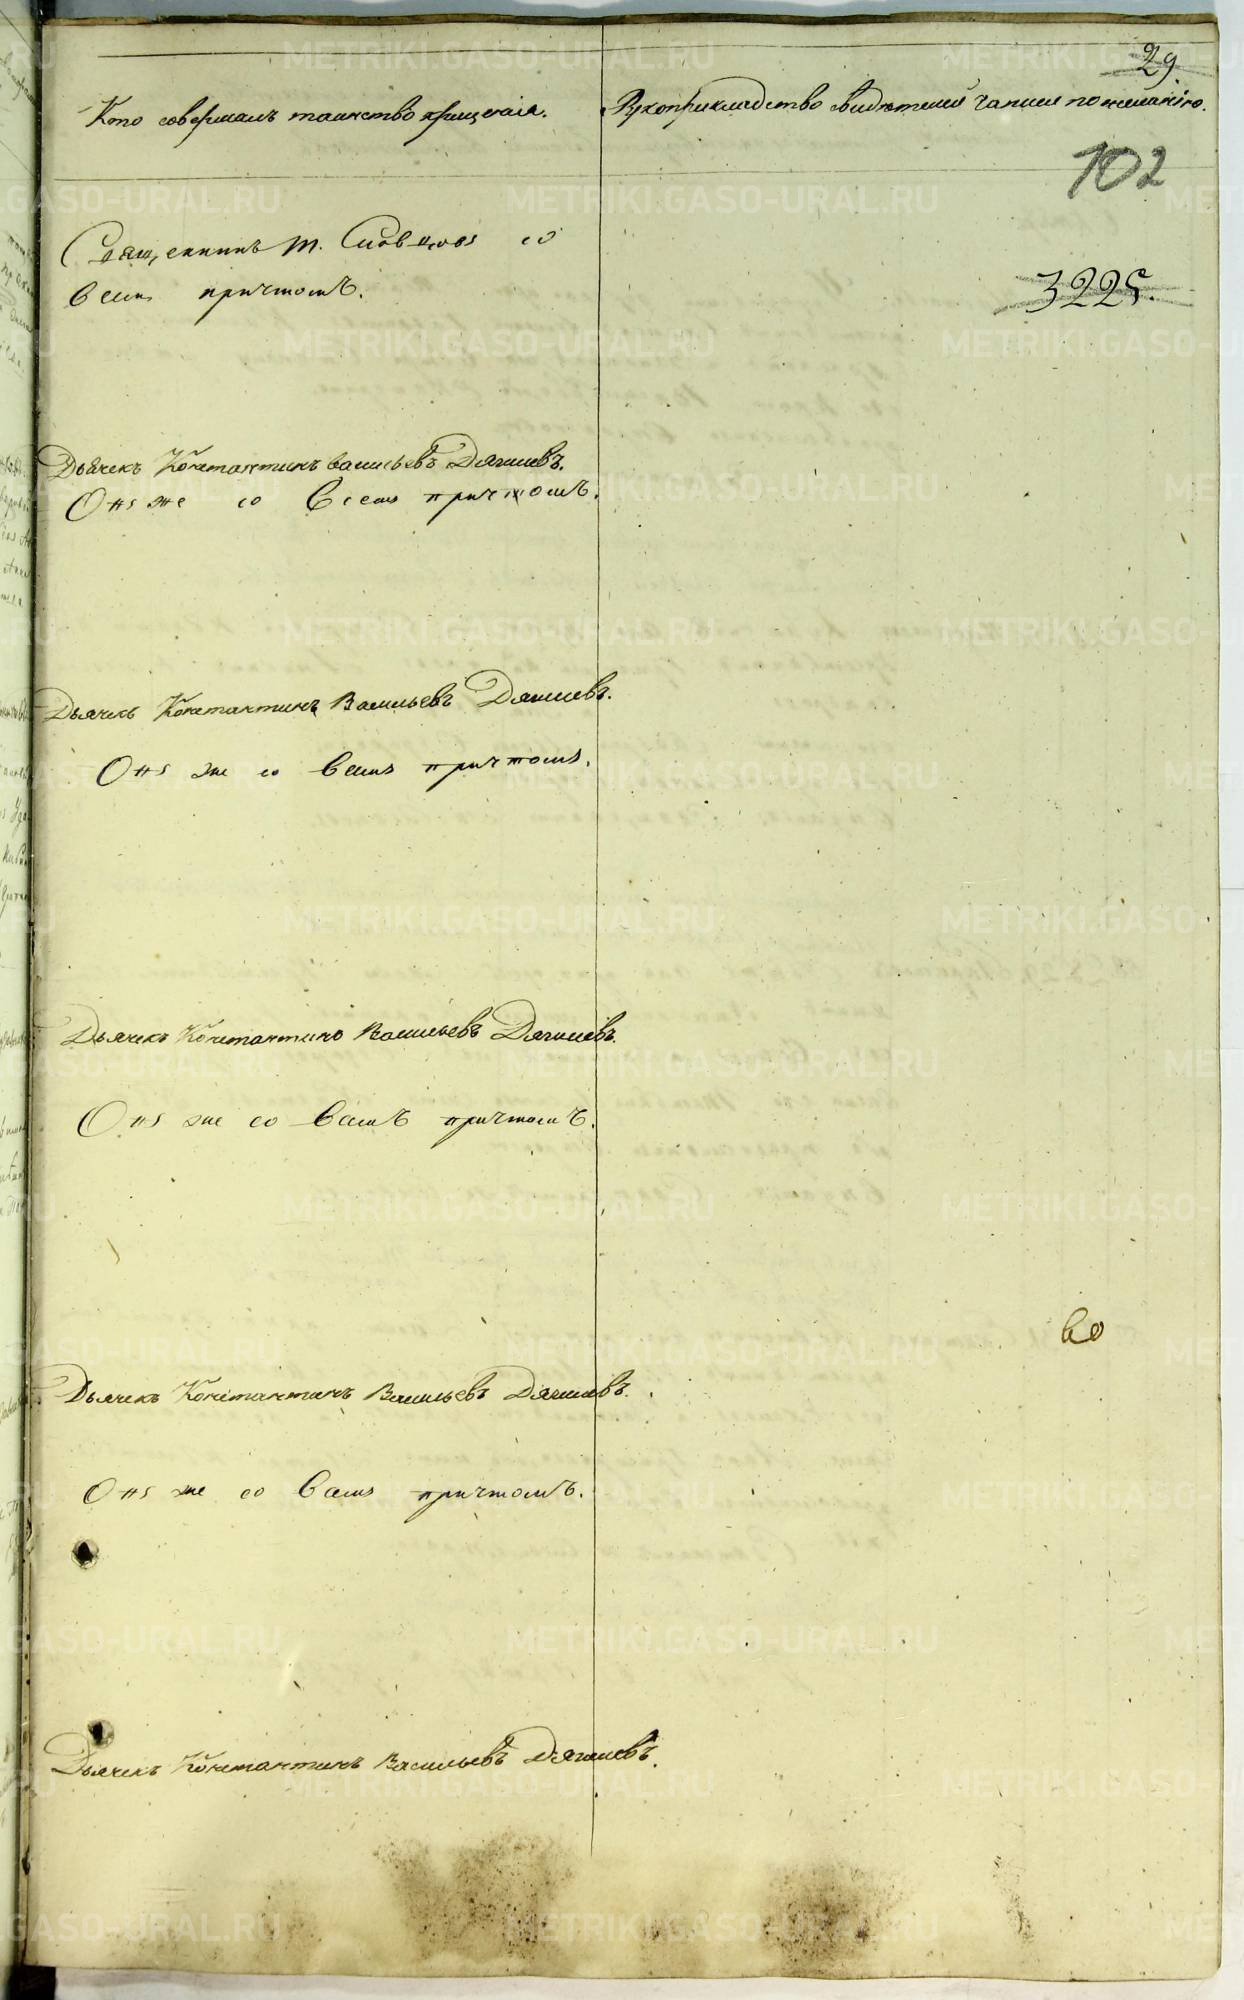 29.
Кто совершалъ таинство крещенія.
Рукоприкладство свидѣтелей записи по желанію.
102
Священникъ Т. Словцовъ со
всем причтомъ.
3225.
Дьячекъ Константинъ Васильевъ Дягилевъ.
Онъ же со всемъ причтомъ.
Дьячекъ Константинъ Васильевъ Дягилевъ.
Онъ же со всемъ причтомъ.
Дьячекъ Константинъ Васильевъ Дягилевъ.
Онъ же со всемъ причтомъ.
во
Дьячекъ Константинъ Васильевъ Дягилевъ.
Онъ же со всемъ причтомъ.
Дьячекъ Константинъ Васильевъ Дягилевъ.
METRIKI.GASO-URAL.RU